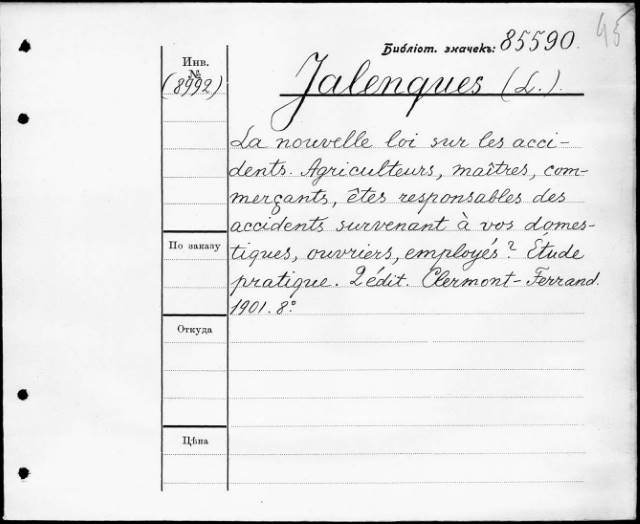 45
Библіот. значекъ: 85590.
Инв.
№
(8992)
Jalenques (L.).
La nouvelle loi sur les acci-
dents. Agriculteurs, maîtres, com-
merçants, êtes responsables des
accidents survenant à vos domes-
tiques, ouvriers, employés? Étude
pratique. 2 édit. Clermont-Ferrand.
1901. 8º
По заказу
Откуда
Цѣна